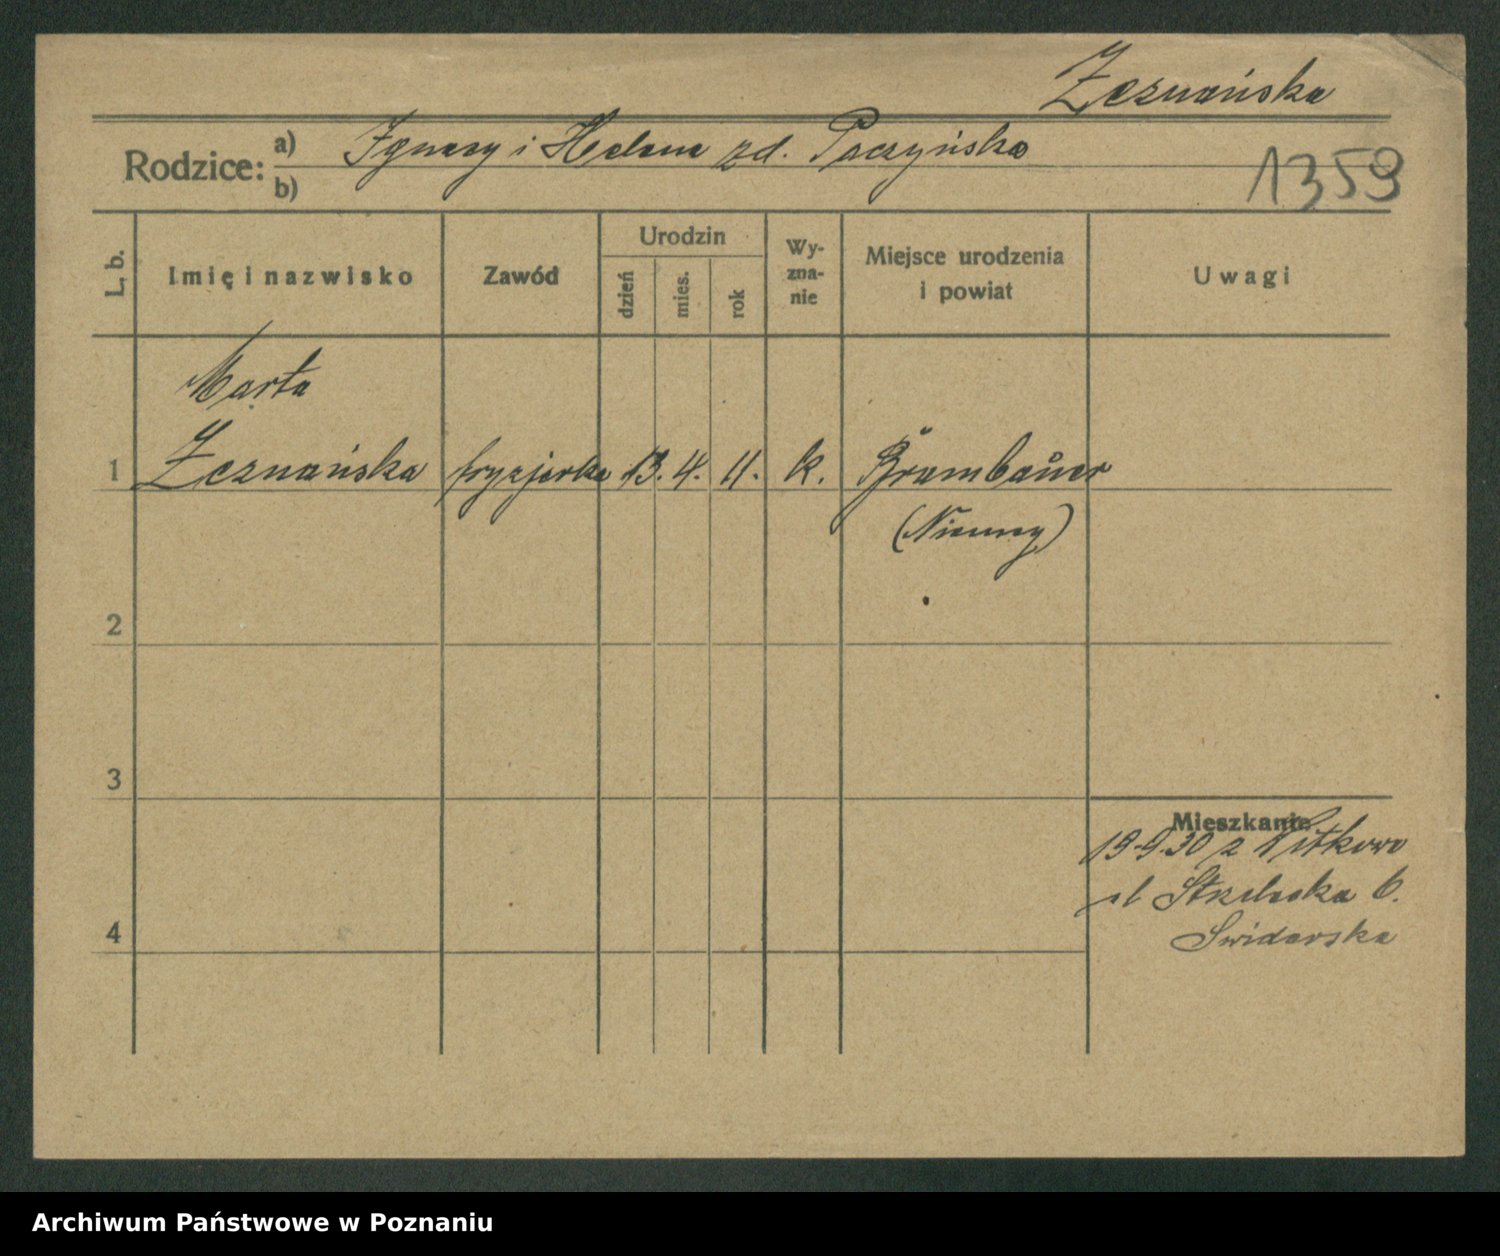 Zeznańska
Rodzice: a) Ignacy i Helena zd. Paczyńska
b)
1359
L. b.
Imię i nazwisko
Zawód
Urodzin
dzień
mies.
rok
Wy-
zna-
nie
Miejsce urodzenia
i powiat
Uwagi
Marta
1 Zeznańska fryzjerka 13. 4. 11. k. Brambauer
(Niemcy)
2
3
Mieszkanie
19.9.30 z Witkowo
ul Strzelecka 6.
4
Swiderska
Archiwum Państwowe w Poznaniu